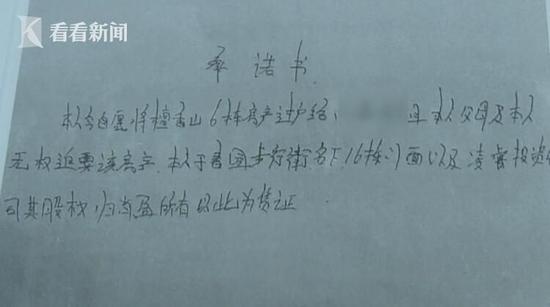 看看新闻
承诺书
本人自愿将檀香山6栋房产过户给 且本人父母及本人
无权追要该房产.本人于 步行街名下16栋门面以及凌 投资
司其股权归 所有以此为凭证.